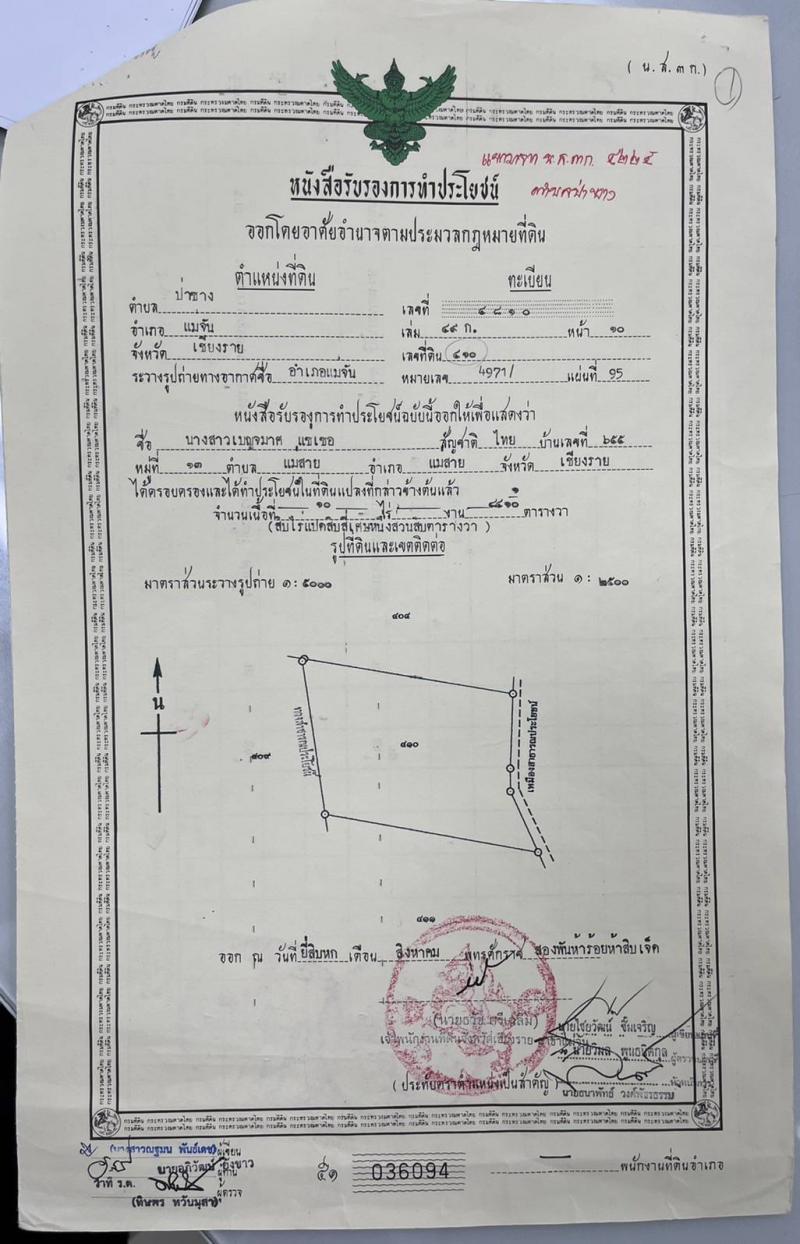 ( น.ส.๓ ก.)
๑
น.ส.๓ก. ๔๒๒๕
หนังสือรับรองการทำประโยชน์
ออกโดยอาศัยอำนาจตามประมวลกฎหมายที่ดิน
ตำแหน่งที่ดิน
ทะเบียน
ตำบล ป่าซาง
เลขที่ ๔๘๑๐
อำเภอ แม่จัน
เล่ม ๔๙ ก. หน้า ๑๐
จังหวัด เชียงราย
เลขที่ดิน ๔๑๐
ระวางรูปถ่ายทางอากาศชื่อ อำเภอแม่จัน
หมายเลข 4971/ แผ่นที่ 95
หนังสือรับรองการทำประโยชน์ฉบับนี้ออกให้เพื่อแสดงว่า
ชื่อ นางสาวเบญจมาศ แซ่เชอ สัญชาติ ไทย บ้านเลขที่ ๖๕๕
หมู่ที่ ๑๓ ตำบล แม่สาย อำเภอ แม่สาย จังหวัด เชียงราย
ได้ครอบครองและได้ทำประโยชน์ในที่ดินแปลงที่กล่าวข้างต้นแล้ว
จำนวนเนื้อที่ ๑๐ ไร่ - งาน ๘๔ ๑/๑๐ ตารางวา
(สิบไร่แปดสิบสี่เศษหนึ่งส่วนสิบตารางวา )
รูปที่ดินและเขตติดต่อ
มาตราส่วนระวางรูปถ่าย ๑ : ๕๐๐๐
มาตราส่วน ๑ : ๒๕๐๐
๔๐๔
น
ทางสาธารณประโยชน์
๔๐๙
๔๑๐
เหมืองสาธารณประโยชน์
๔๑๑
ออก ณ วันที่ ยี่สิบหก เดือน สิงหาคม พุทธศักราช สองพันห้าร้อยห้าสิบเจ็ด
นายไชยวัฒน์
เจ้าพนักงานที่ดินจังหวัดเชียงราย
นายวิมล
( ประทับตราตำแหน่งเป็นสำคัญ )
นายธนาพัทธ์ วงค์พัธธรรม
(นางสาวณฐมน พันธ์เดช) ผู้เขียน
นายอภิวัฒน์
ว่าที่ ร.ต.
ผู้ตรวจ
(ทิษพร ทวันมุสา)
๕๑
036094
พนักงานที่ดินอำเภอ